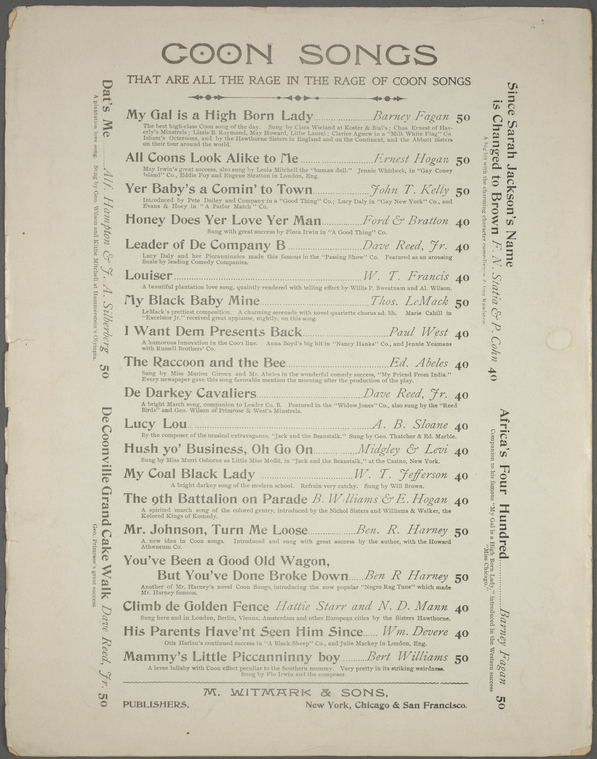 COON SONGS
THAT ARE ALL THE RAGE IN THE RAGE OF COON SONGS
My Gal is a High Born Lady Barney Fagan 50
The best high-class Coon song of the day. Sung by Clara Wieland at Koster & Bial's; Chas. Ernest of Hav-
erly's Minstrels; Lizzie B. Raymond, May Howard, Lillie Laurel; Clarice Agnew in a "Milk White Flag" Co.
Isham's Octoroons, and by the Hawthorne Sisters in England and on the Continent, and the Abbott Sisters
on their tour around the world.
All Coons Look Alike to Me Ernest Hogan 50
May Irwin's great success, also sung by Leola Mitchell the "human doll." Jennie Whitbeck, in "Gay Coney
Island" Co., Eddie Foy and Eugene Stratton in London, Eng.
Yer Baby's a Comin' to Town John T. Kelly 50
Introduced by Pete Dailey and Company in a "Good Thing" Co.; Lucy Daly in "Gay New York" Co., and
Evans & Hoey in "A Parlor Match" Co.
Honey Does Yer Love Yer Man Ford & Bratton 40
Sung with great success by Flora Irwin in "A Good Thing" Co.
Leader of De Company B Dave Reed, Jr. 40
Lucy Daly and her Picaninnies made this famous in the "Passing Show" Co. Featured as an arousing
finale by leading Comedy Companies.
Louiser W. T. Francis 40
A beautiful plantation love song, quaintly rendered with telling effect by Willis P. Sweatnam and Al. Wilson.
My Black Baby Mine Thos. LeMack 50
LeMack's prettiest composition. A charming serenade with novel quartette chorus ad. lib. Marie Cahill in
"Excelsior Jr." received great applause, nightly, on this song.
I Want Dem Presents Back Paul West 40
A humorous innovation in the Coon line. Anna Boyd's big hit in "Nancy Hanks" Co., and Jennie Yeamans
with Russell Brothers' Co.
The Raccoon and the Bee Ed. Abeles 40
Sung by Miss Marion Giroux and Mr. Abeles in the wonderful comedy success, "My Friend From India."
Every newspaper gave this song favorable mention the morning after the production of the play.
De Darkey Cavaliers Dave Reed, Jr. 40
A bright March song, companion to Leader Co. B. Featured in the "Widow Jones" Co., also sung by the "Reed
Birds" and Geo. Wilson of Primrose & West's Minstrels.
Lucy Lou A. B. Sloane 40
By the composer of the musical extravaganza, "Jack and the Beanstalk." Sung by Geo. Thatcher & Ed. Marble.
Hush yo' Business, Oh Go On Midgley & Levi 40
Sung by Miss Merri Osborne as Little Miss Moffit, in "Jack and the Beanstalk," at the Casino, New York.
My Coal Black Lady W. T. Jefferson 40
A bright darkey song of the modern school. Refrain very catchy. Sung by Will Brown.
The 9th Battalion on Parade B. Williams & E. Hogan 40
A spirited march song of the colored gentry, introduced by the Nichol Sisters and Williams & Walker, the
Kolored Kings of Komedy.
Mr. Johnson, Turn Me Loose Ben. R. Harney 50
A new idea in Coon songs. Introduced and sung with great success by the author, with the Howard
Athæneum Co.
You've Been a Good Old Wagon,
But You've Done Broke Down Ben R Harney 50
Another of Mr. Harney's novel Coon Songs, introducing the now popular "Negro Rag Tune" which made
Mr. Harney famous.
Climb de Golden Fence Hattie Starr and N. D. Mann 40
Sung here and in London, Berlin, Vienna, Amsterdam and other European cities by the Sisters Hawthorne.
His Parents Have'nt Seen Him Since Wm. Devere 40
Otis Harlan's continued success in "A Black Sheep" Co., and Julie Mackey in London, Eng.
Mammy's Little Piccanninny boy Bert Williams 50
A levee lullaby with Coon effect peculiar to the Southern mammy. Very pretty in its striking weirdness.
Sung by Flo Irwin and the composer.
M. WITMARK & SONS,
PUBLISHERS, New York, Chicago & San Francisco.
Dat's Me Alf. Hampton & J. A. Silberberg 50
A plantation love song. Sung by Geo. Wilson and Kittie Mitchell at Hammerstein's Olympia.
De Coonville Grand Cake Walk Dave Reed, Jr. 50
Geo. Primrose's great success.
Since Sarah Jackson's Name
is Changed to Brown F. N. Statia & P. Cohn 40
A big hit with the charming character comedienne
Africa's Four Hundred Barney Fagan 50
Companion to his famous "My Gal is a High Born Lady," introduced in the Western success
"Miss Chicago."